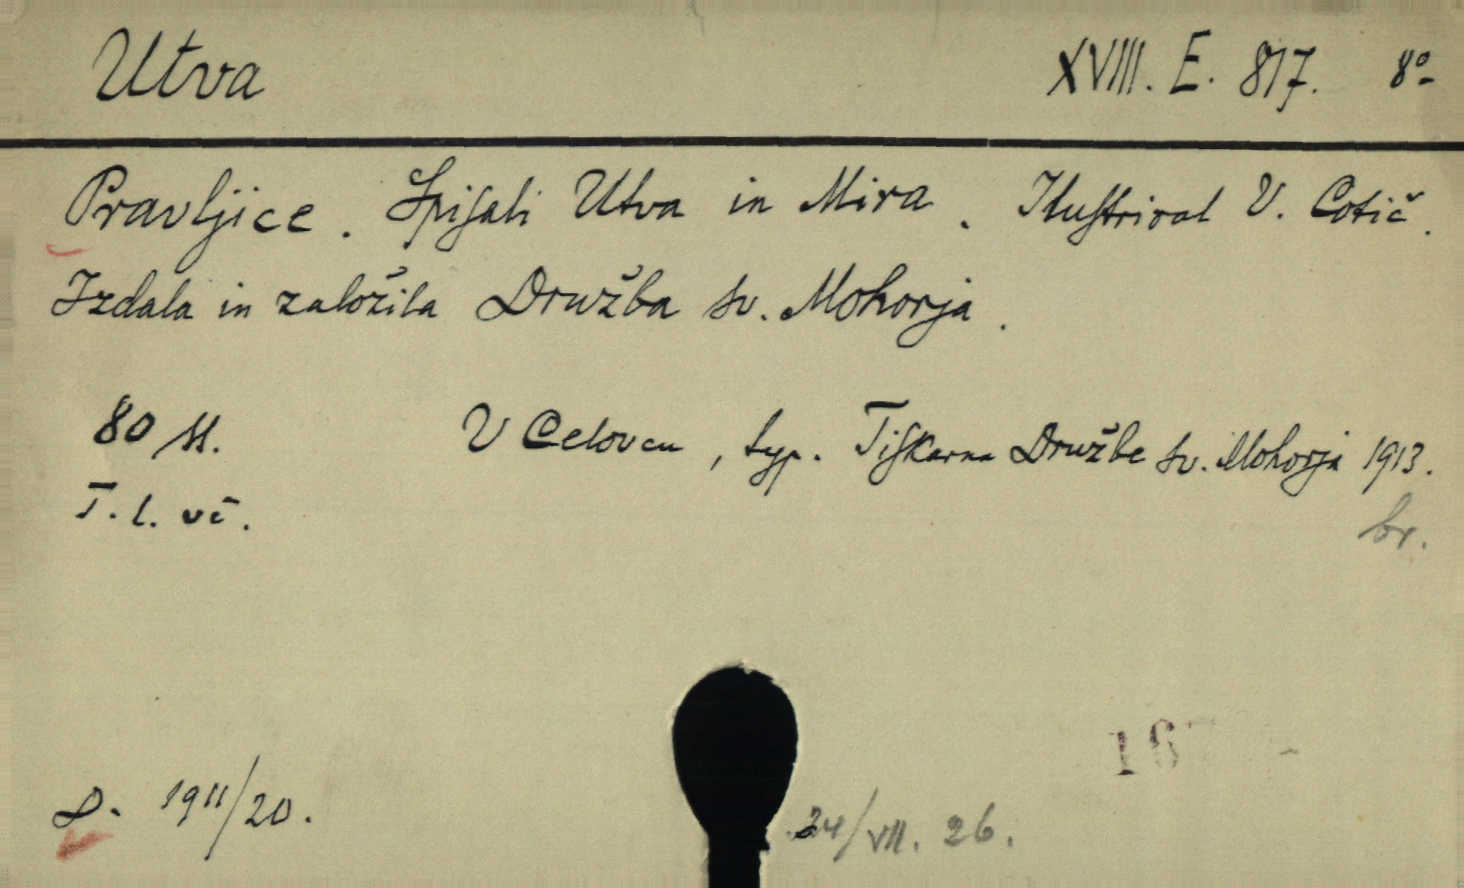 Utva XVIII. E. 817. 8º
Pravljice. Spisali Utva in Mira. Ilustriral V. Cotič.
Izdala in založila Družba sv. Mohorja.
80 st. V Celovcu, typ. Tiskarna Družbe sv. Mohorja 1913.
T. l. vč. br.
16
D. 1911/20. 24/VII. 26.